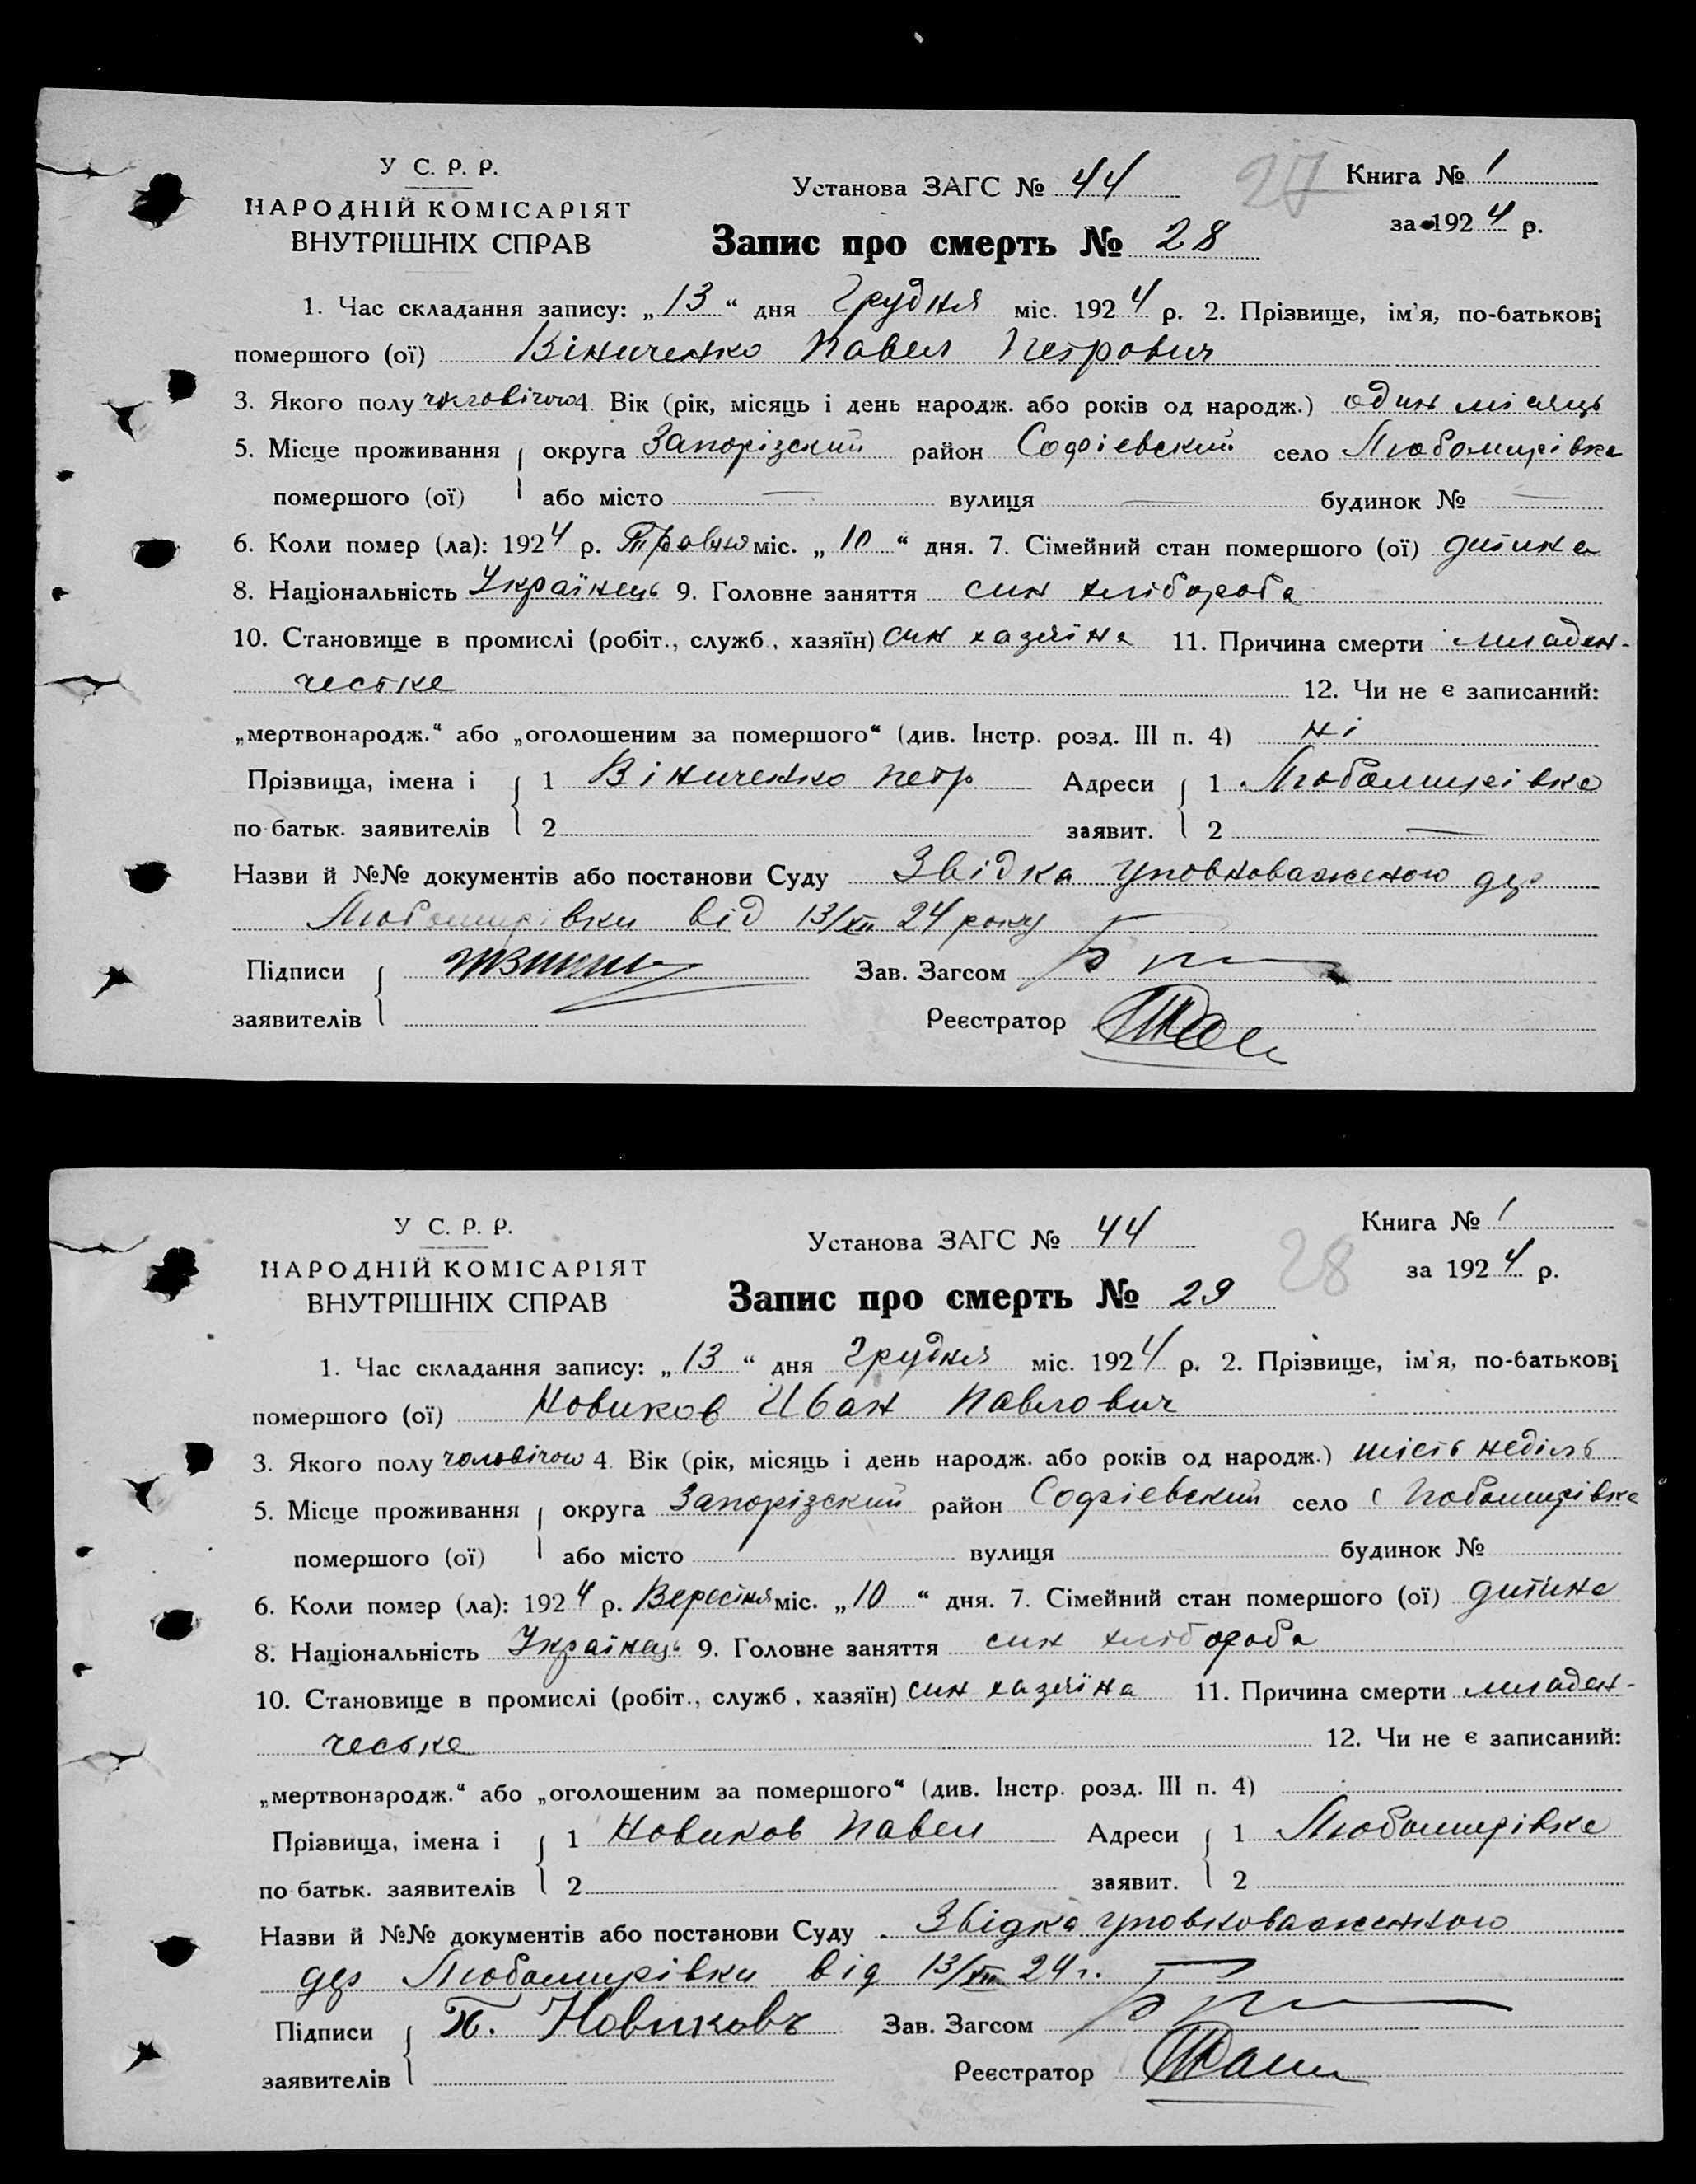 У С. Р. Р.
НАРОДНІЙ КОМІСАРІЯТ
ВНУТРІШНІХ СПРАВ
Установа ЗАГС № 44
27
Книга № 1
за 1924 р.
Запис про смерть № 28
1. Час складання запису: „13“ дня Грудня міс. 1924 р. 2. Прізвище, ім'я, по-батькові
помершого (ої) Вінниченко Павел Петрович
3. Якого полу чоловічою 4. Вік (рік, місяць і день народж. або років од народж.) один місяць
5. Місце проживання округа Запорізский район Софіевский село Любомирівка
помершого (ої) або місто — вулиця — будинок № —
6. Коли помер (ла): 1924 р. Травня міс. „10“ дня. 7. Сімейний стан помершого (ої) дитина
8. Національність Українець 9. Головне заняття син хлібороба
10. Становище в промислі (робіт., служб, хазяїн) син хазяїна 11. Причина смерти младен-
ческе 12. Чи не є записаний:
„мертвонародж.“ або „оголошеним за помершого“ (див. Інстр. розд. III п. 4) ні
Прізвища, імена і 1 Вініченко Петр Адреси 1 Любомирівка
по батьк. заявителів 2 заявит. 2 —
Назви й №№ документів або постанови Суду Звідка уповноваженою дер
Любомирівки від 13/XII 24 року
Підписи Зав. Загсом
заявителів Реєстратор
У С. Р. Р.
НАРОДНІЙ КОМІСАРІЯТ
ВНУТРІШНІХ СПРАВ
Установа ЗАГС № 44
28
Книга № 1
за 1924 р.
Запис про смерть № 29
1. Час складання запису: „13“ дня Грудня міс. 1924 р. 2. Прізвище, ім'я, по-батькові
помершого (ої) Новиков Иван Павлович
3. Якого полу чоловічою 4. Вік (рік, місяць і день народж. або років од народж.) шість неділь
5. Місце проживання округа Запорізский район Софіевский село Любомирівка
помершого (ої) або місто вулиця будинок №
6. Коли помер (ла): 1924 р. Вересня міс. „10“ дня. 7. Сімейний стан помершого (ої) дитина
8. Національність Українець 9. Головне заняття син хлібороба
10. Становище в промислі (робіт., служб, хазяїн) син хазяїна 11. Причина смерти младен-
ческе 12. Чи не є записаний:
„мертвонародж.“ або „оголошеним за помершого“ (див. Інстр. розд. III п. 4)
Прізвища, імена і 1 Новиков Павел Адреси 1 Любомирівка
по батьк. заявителів 2 заявит. 2
Назви й №№ документів або постанови Суду Звідка уповноваженною
дер Любомирівки від 13/XII 24 г.
Підписи П. Новиковъ Зав. Загсом
заявителів Реєстратор